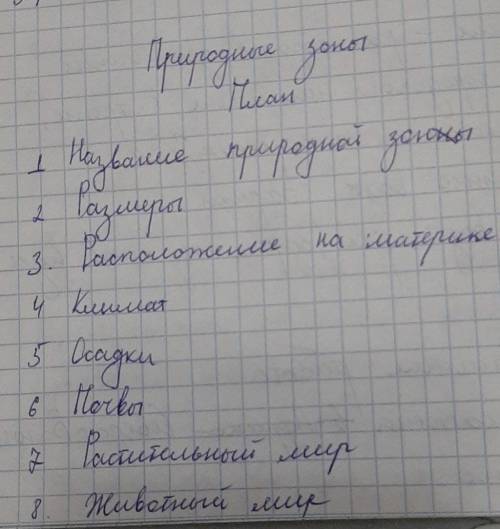 Природные зоны
План
1 Название природной зоны
2 Размеры
3. Расположение на материке
4 Климат
5 Осадки
6 Почвы
7 Растительный мир
8. Животный мир